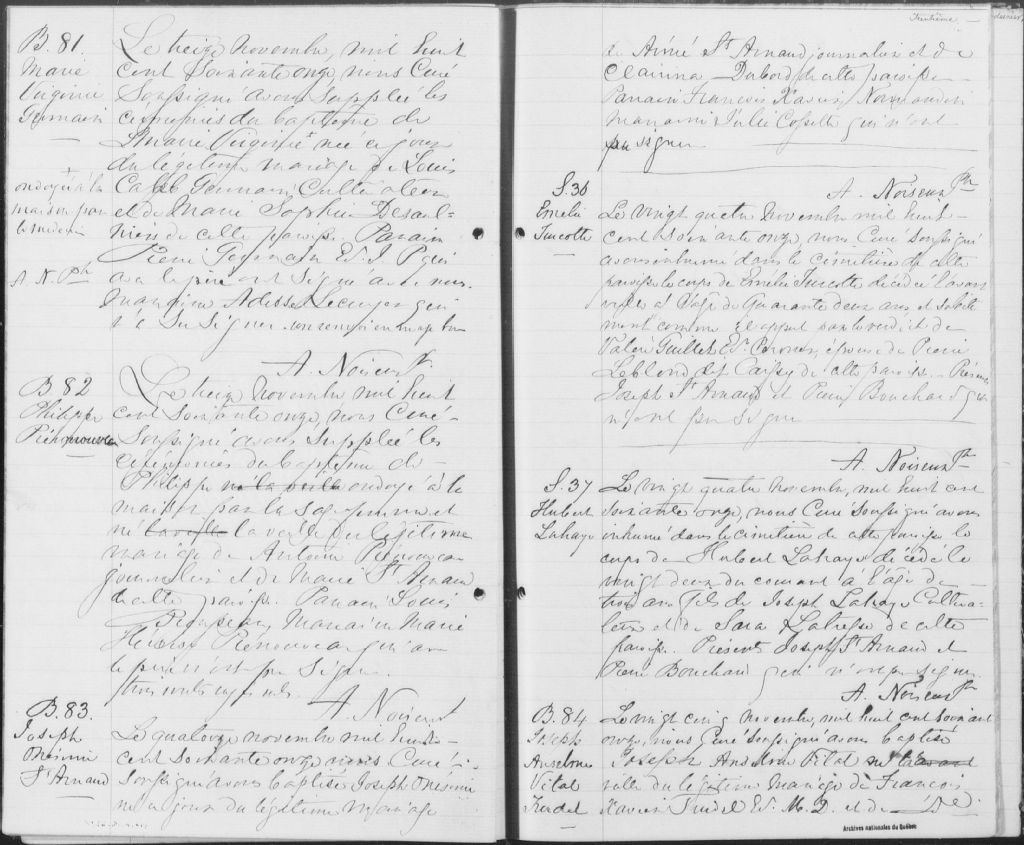 B. 81.
Marie
Virginie
Germain
Le treize Novembre, mil huit
cent soixante onze, nous Curé
Soussigné avons Suppléé les
cérémonies du baptême de
Marie Virginie + née ce jour
du légitime mariage de Louis
Germain, Cultivateur
et de Marie Sophie Desaul-
niers de cette paroisse. Parrain
Pierre Germain Ec. J. P. qui
le père ont Signé avec nous.
Marraine qui
n'a Su Signer. un renvoi en marge bon
+
ondoyée à la
maison par
le médecin
A. N. Ptr
A. Noiseux Ptr.
B. 82
Philippe
Prénouveau
Le treize Novembre mil huit
cent soixante onze, nous Curé
Soussigné avons Suppléé les
cérémonies du baptême de
Philippe né la veille ondoyé à la
maison par la Sage-femme et
né la veille la veille du légitime
mariage de Antoine Prénouveau
journalier et de Marie St Arnaud
de cette paroisse. Parrain Louis
Marraine Marie
Prénouveau qui avec
le père n'ont pu Signer.
trois mots rayés nuls.
A. Noiseux
B. 83.
Joseph
Onésime
St Arnaud
Le quatorze novembre mil huit
cent soixante onze nous Curé
soussigné avons baptisé Joseph Onésime
né ce jour du légitime mariage
Trentième — dernier
de Aimé St Arnaud journalier et de
Clarinna Dubord de cette paroisse
Parrain Francois Xavier Normandin
marraine Julie Cossette qui n'ont
pu signer
A. Noiseux Ptr
S. 36
Emélie
Turcotte
Le vingt quatre Novembre mil huit
cent soixante onze, nous Curé soussigné
avons inhumé dans le cimetière de cette
paroisse le corps de Emélie Turcotte décédée l'avant
veille à l'âge de Quarante deux ans, et subite
ment comme il appert par le verdict de
Valère Guillet Ec. Coroner, épouse de Pierre
Leblond dit de cette paroisse. Présents
Joseph St Arnaud et Pierre Bouchard qui
n'ont pu signer
A. Noiseux Ptr
S. 37
Hubert
Lahaye
Le vingt quatre Novembre, mil huit cent
soixante onze, nous Curé soussigné avons
inhumé dans le cimetière de cette paroisse le
corps de Hubert Lahaye décédé le
vingt deux du courant à l'âge de
trois ans fils de Joseph Lahaye Cultiva-
teur et de Sara de cette
paroisse. Présents Joseph St Arnaud et
Pierre Bouchard qui n'ont pu signer
A. Noiseux Ptr
B. 84
Joseph
Anselme
Vital
Trudel
Le vingt cinq novembre, mil huit cent soixante
onze, nous Curé soussigné avons baptisé
Joseph Anselme Vital né l'avant
veille du légitime mariage de Francois
Xavier Trudel Ec. M. D. et de
Archives nationales du Québec